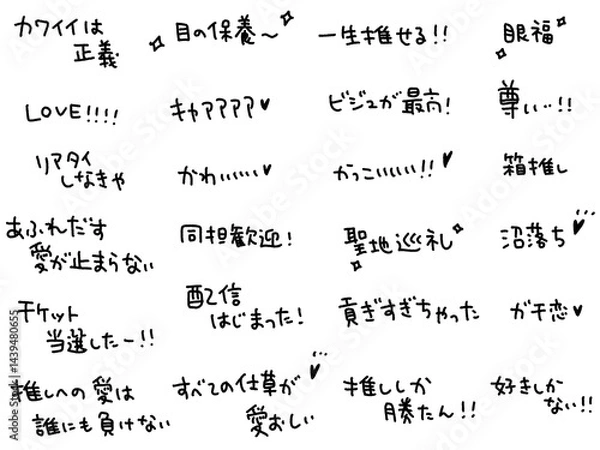 カワイイは
正義
目の保養〜
一生推せる!!
眼福
LOVE!!!!
キャアアアア♥
ビジュが最高!
尊い…!!
リアタイ
しなきゃ
かわいいいい♥
かっこいいい!!♥
箱推し
あふれだす
愛が止まらない
同担歓迎!
聖地巡礼
沼落ち♥
チケット
当選したー!!
配信
はじまった!
貢ぎすぎちゃった
ガチ恋♥
推しへの愛は
誰にも負けない
すべての仕草が
愛おしい♥
推ししか
勝たん!!
好きしか
ない!!
Adobe Stock | #1439480655